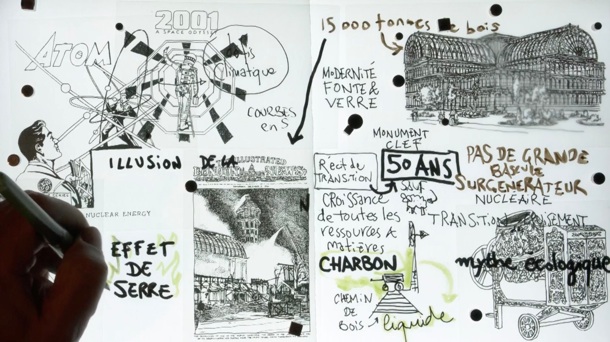 2001
A SPACE ODYSSEY
ATOM
Climatique
COURBES
en S
15 000 tonnes de bois
MODERNITÉ
FONTE &
VERRE
MONUMENT
CLEF
ILLUSION DE LA
ILLUSTRATED
Récit de
TRANSITION
50 ANS
PAS DE GRANDE
BASCULE
SURGENERATEUR
NUCLEAIRE
NUCLEAR ENERGY
CROISSANCE
de toutes les
ressources &
matières
TRANSITION
EFFET
DE
SERRE
CHARBON
mythe écologique
CHEMIN
DE
BOIS
liquide